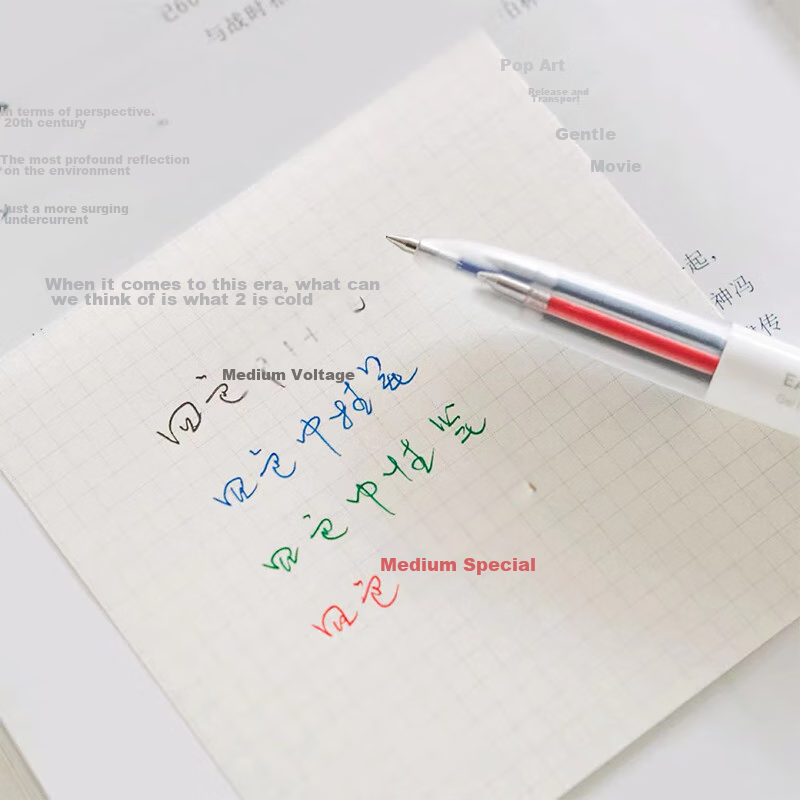 与战时
Pop Art
Release and
Transport
Gentle
Movie
In terms of perspective.
20th century
The most profound reflection
on the environment
Just a more surging
undercurrent
起，
神冯
传
When it comes to this era, what can
we think of is what 2 is cold
四色
Medium Voltage
四色中性笔
四色中性笔
四色
Medium Special